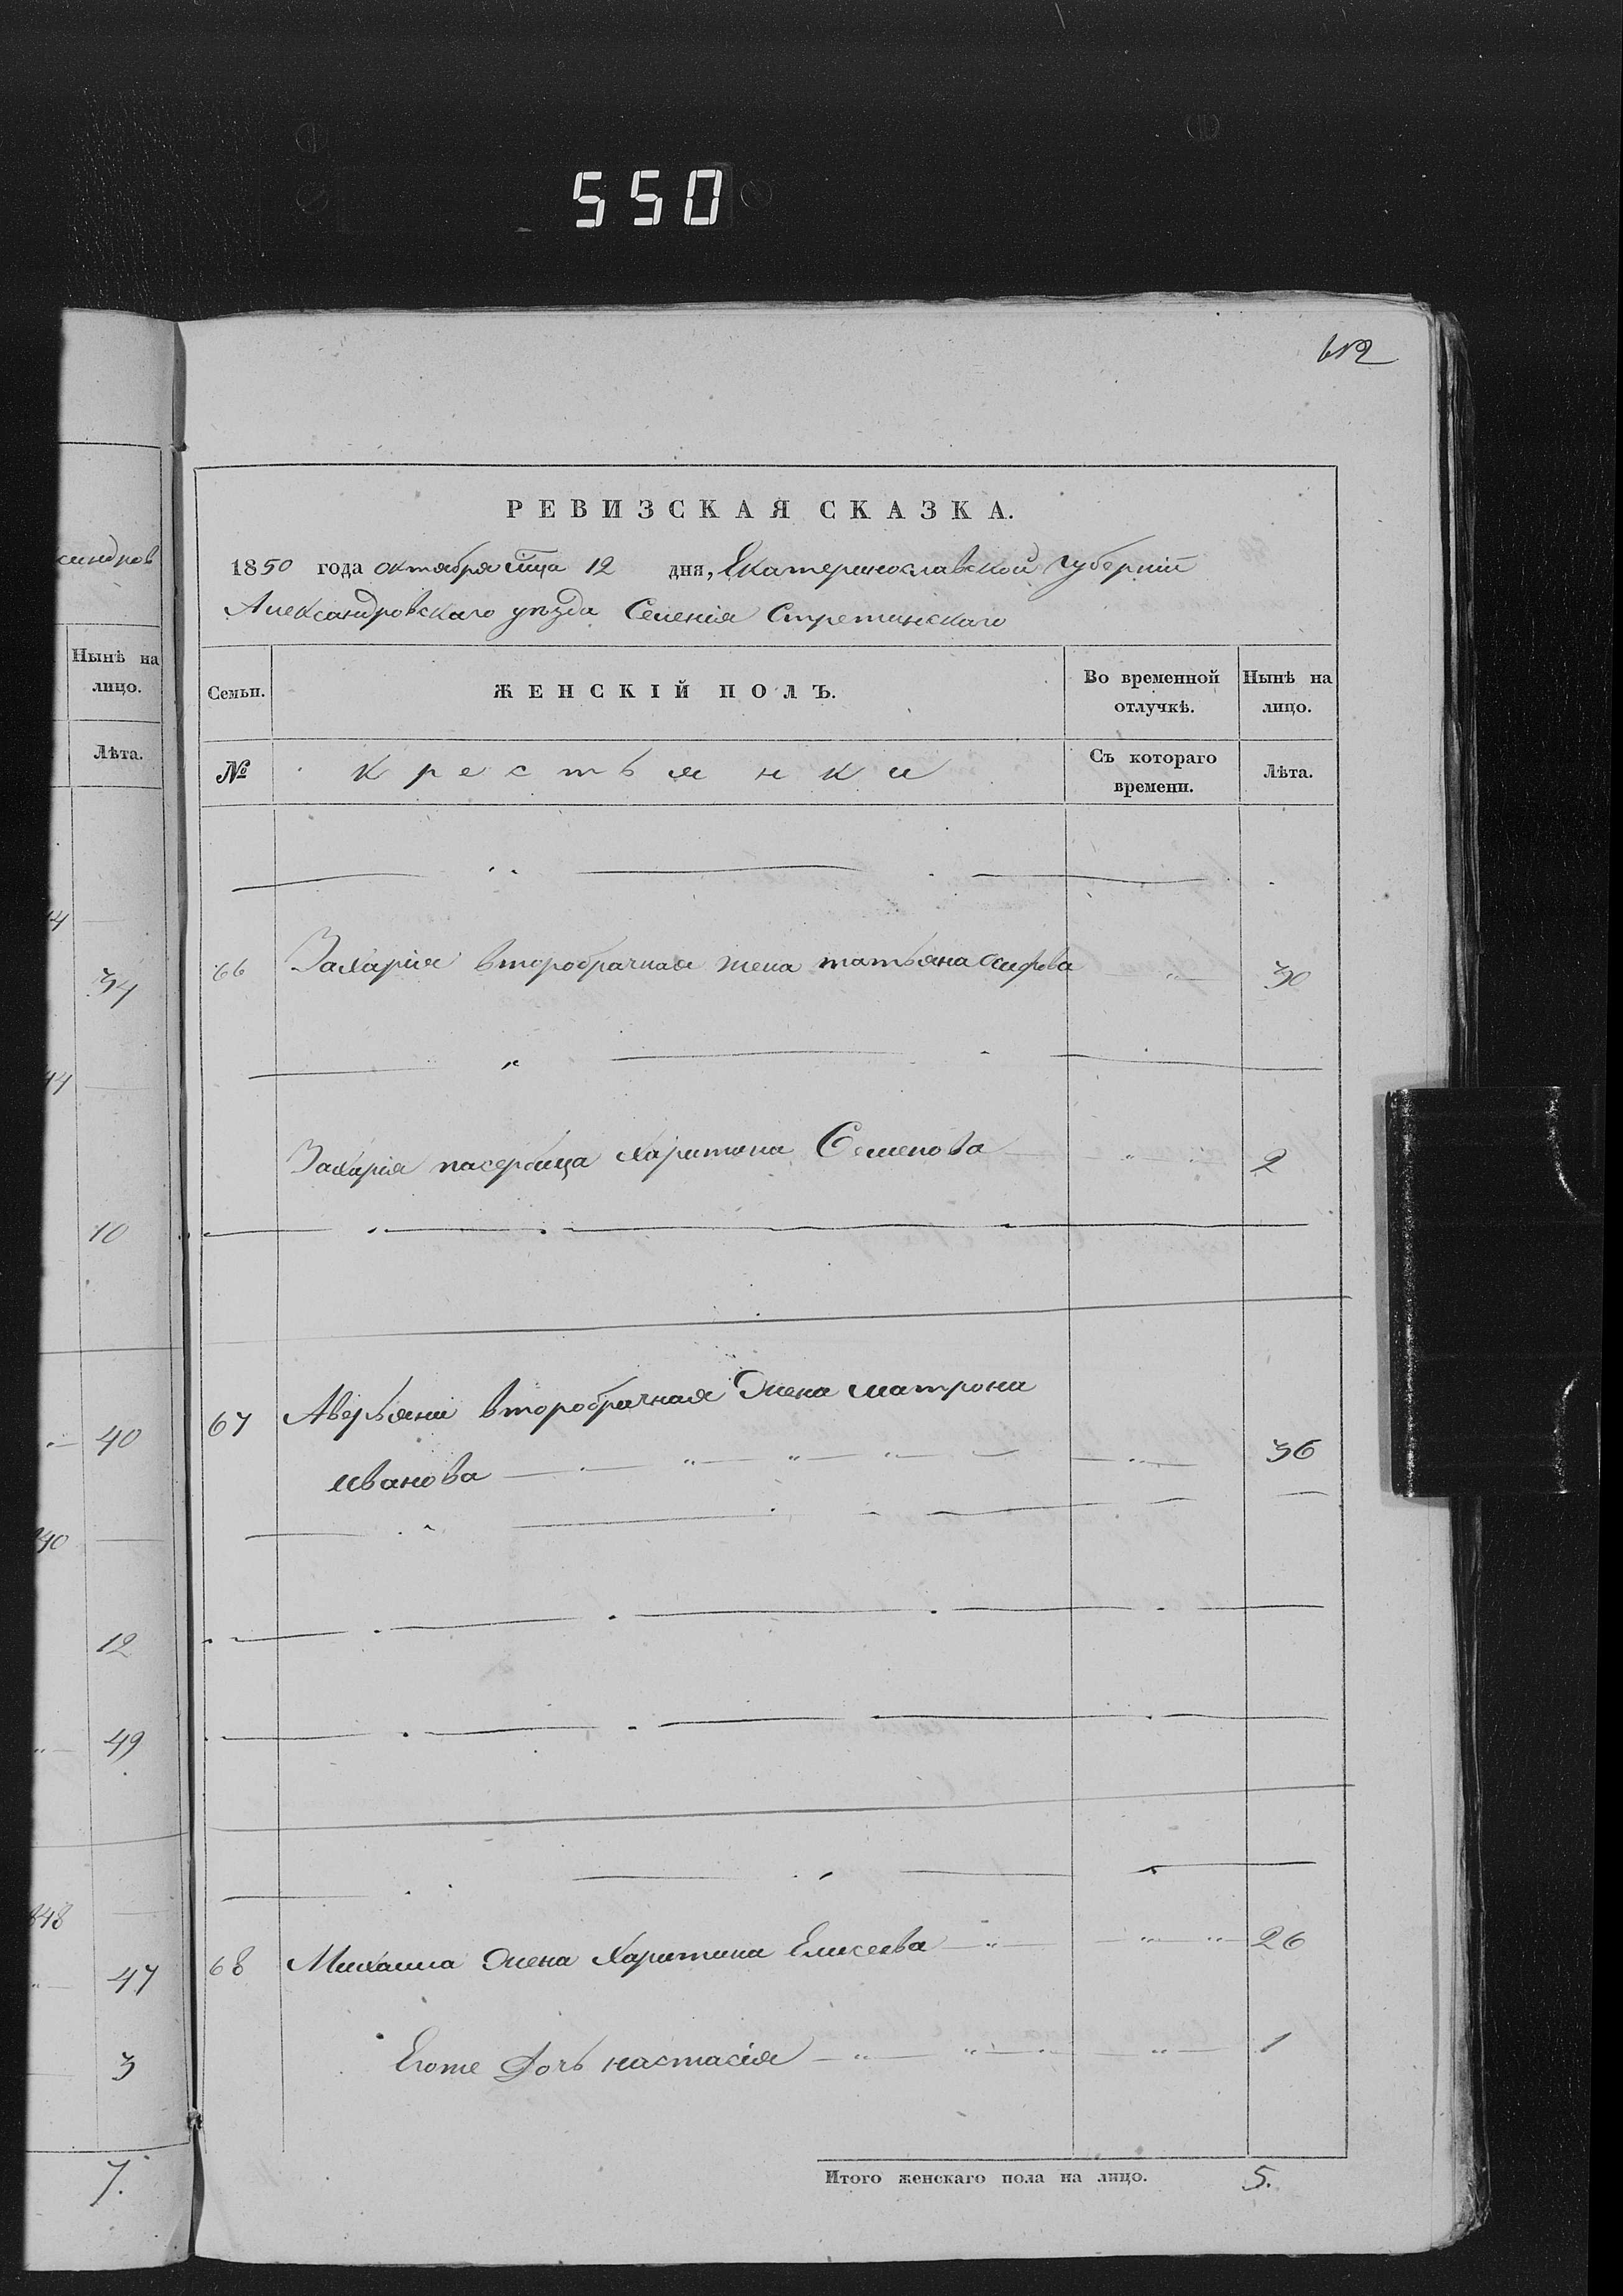 550
612
РЕВИЗСКАЯ СКАЗКА.
1850 года октября мца 12 дня, Екатеринославской губерніи
Александровскаго уѣзда Селенія Стретинскаго
Семьи. ЖЕНСКІЙ ПОЛЪ. Во временной отлучкѣ. Нынѣ на лицо.
№ крестьянки Съ котораго времени. Лѣта.
66 Захарія второбрачная жена татьяна Осифова " 30
Захарія пасербица Харитина Семенова " 2
67 Аверьяна второбрачная жена матрона
иванова " " " " 36
68 Михаила жена Харитина Елисеева " " " 26
Егоже дочь настасія " " " " 1
Итого женскаго пола на лицо. 5.
Нынѣ на
лицо.
Лѣта.
34
10
40
12
49
47
3
7.